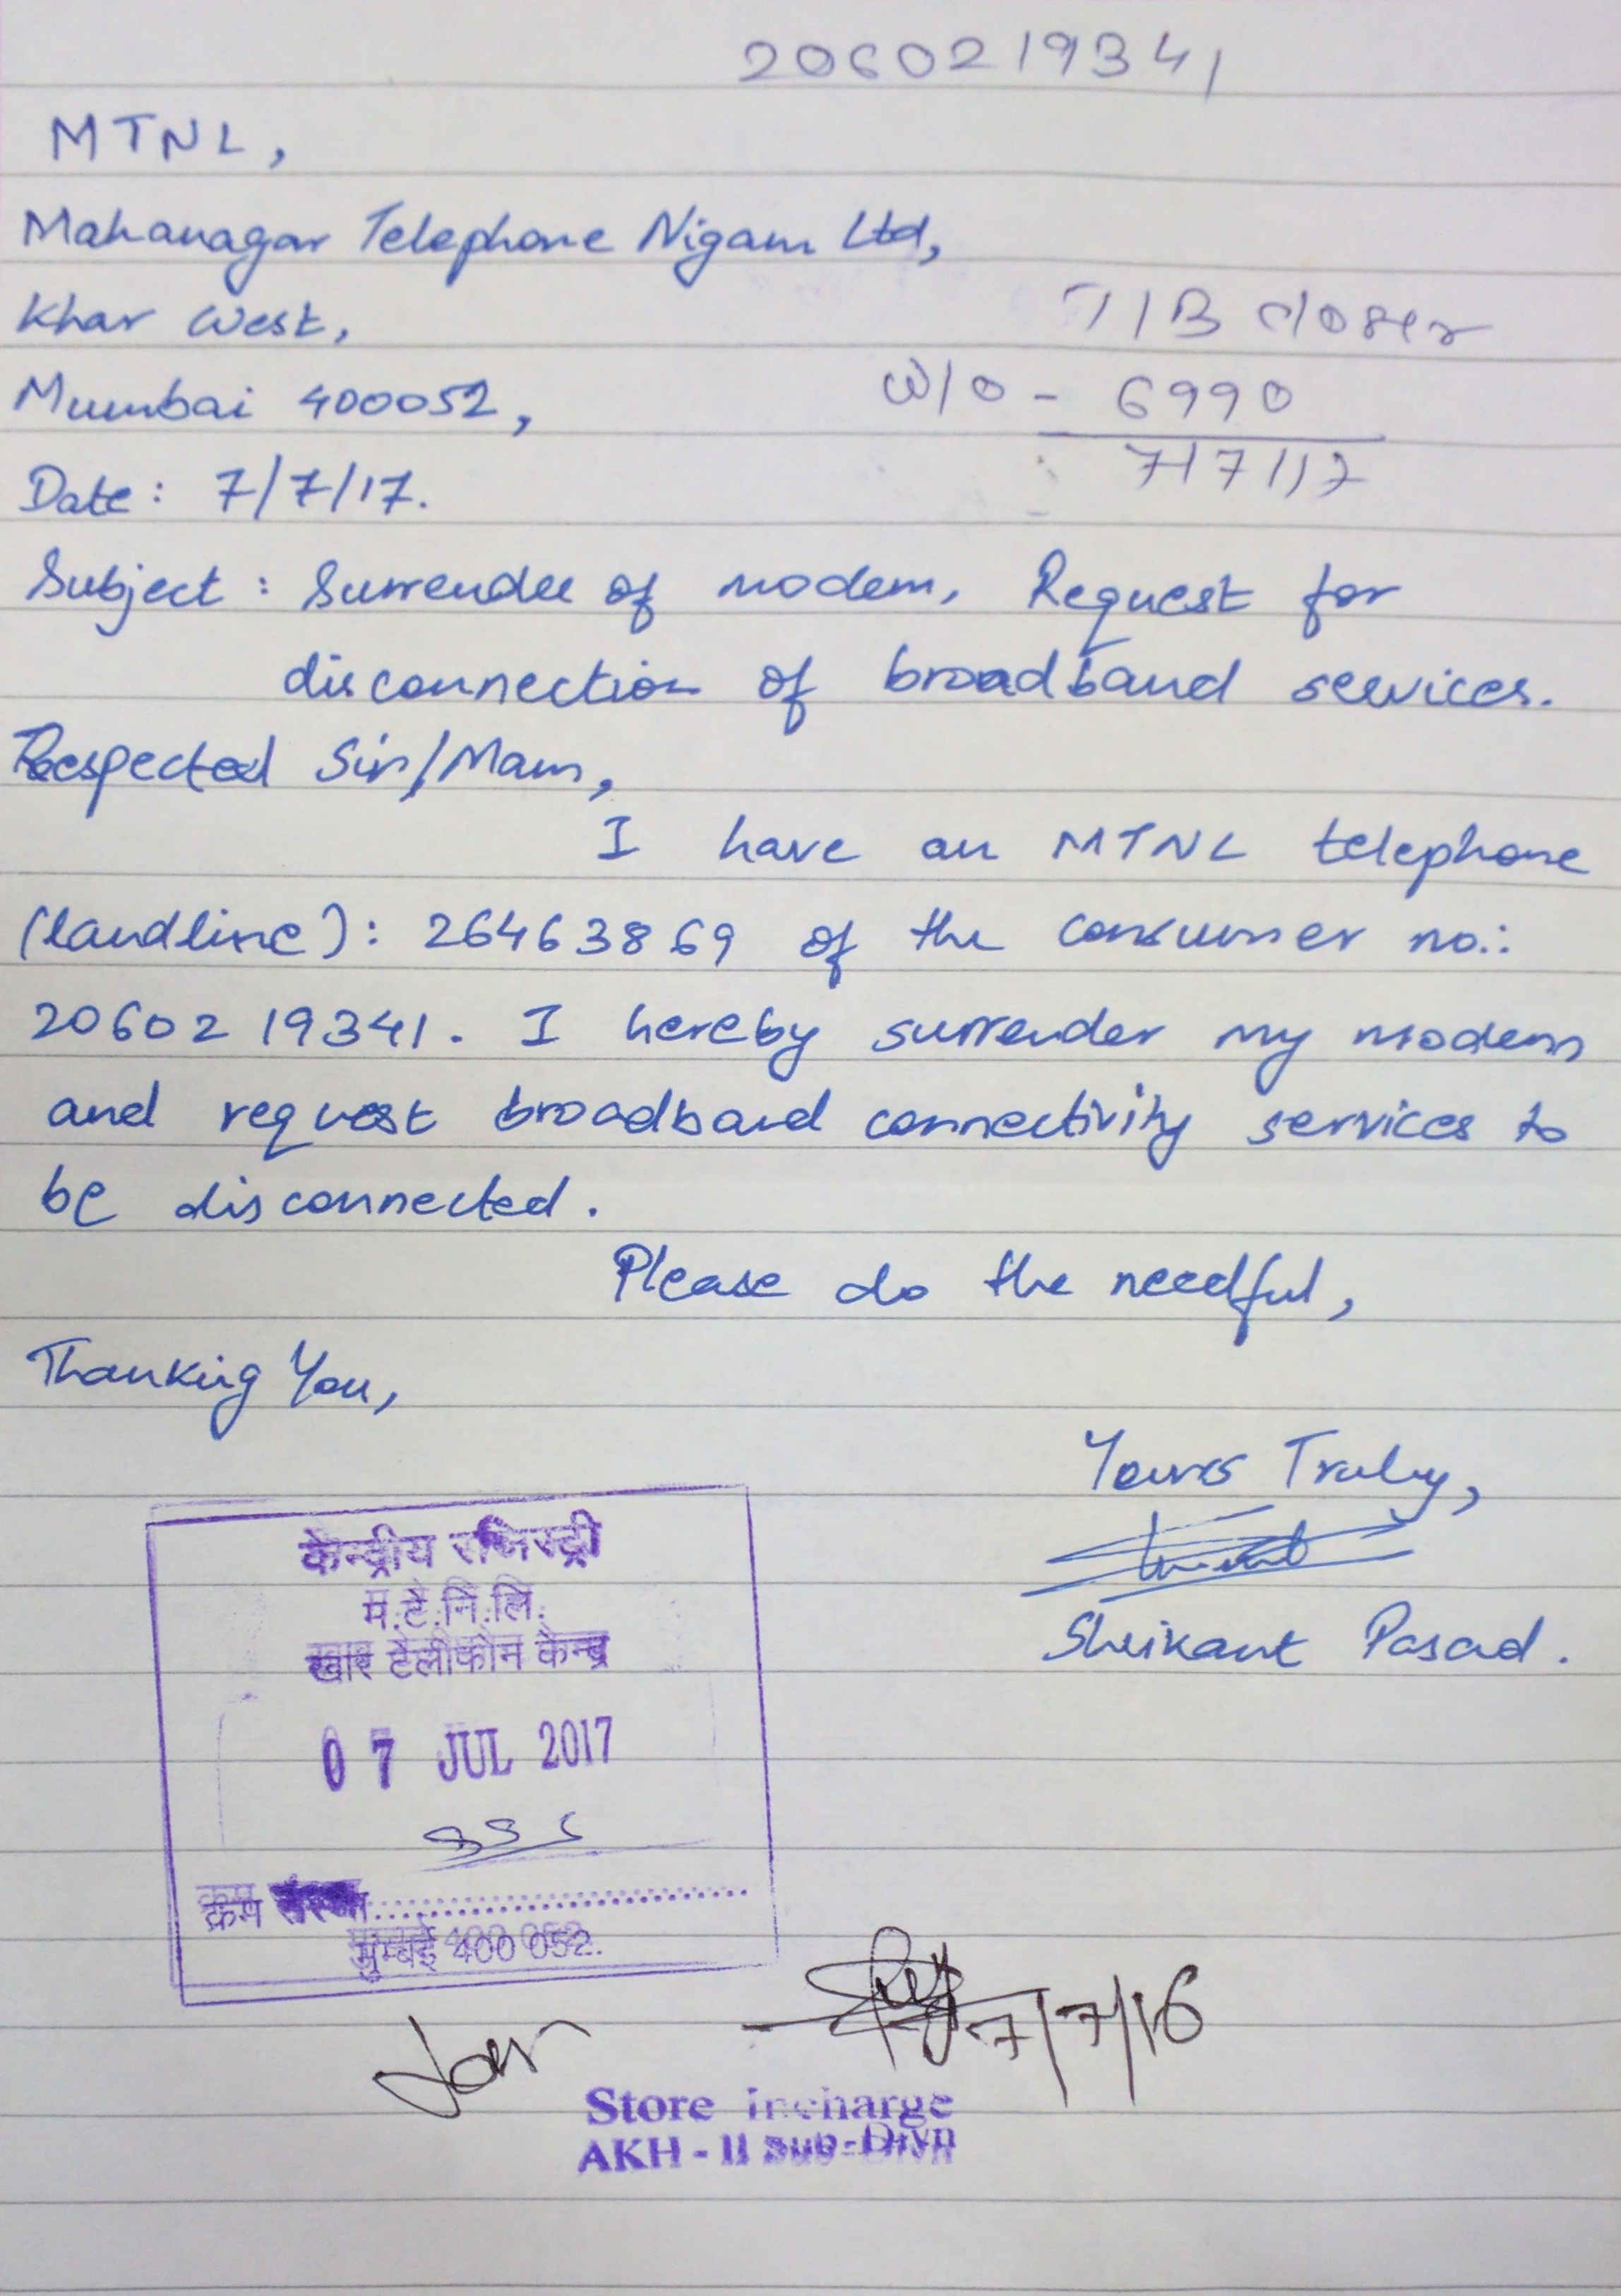 2060219341
MTNL,
Mahanagar Telephone Nigam Ltd,
Khar West,
T/B closer
Mumbai 400052,
W/O - 6990
Date: 7/7/17.
7/7/17
Subject: Surrender of modem, Request for
disconnection of broadband services.
Respected Sir/Mam,
I have an MTNL telephone
(landline): 26463869 of the consumer no.:
2060219341. I hereby surrender my modem
and request broadband connectivity services to
be disconnected.
Please do the needful,
Thanking You,
Yours Truly,
Shrikant Pasad.
केन्द्रीय रजिस्ट्री
म.टे.नि.लि.
खार टेलीफोन केन्द्र
07 JUL 2017
क्रम संख्या
मुम्बई 400 052.
7/7/16
Store incharge
AKH - II Sub-Divn